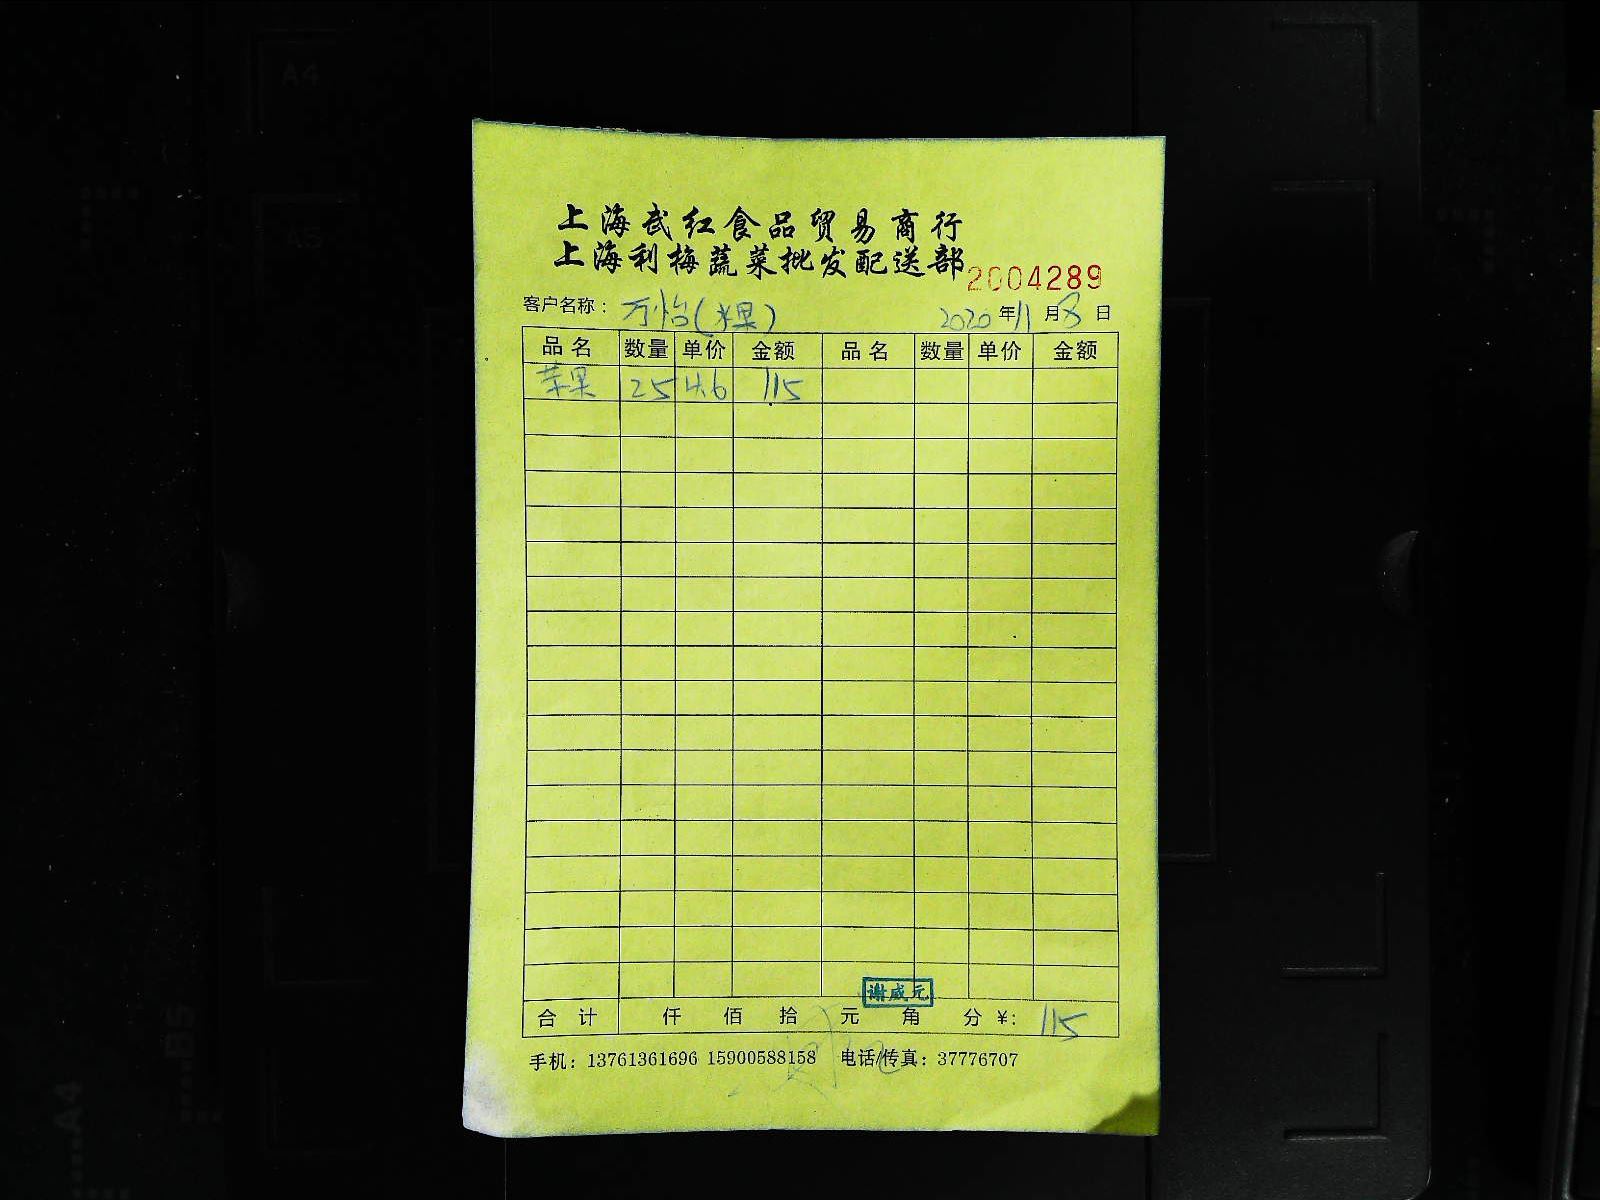 上海武红食品贸易商行
上海利梅蔬菜批发配送部
2004289
客户名称：万怡(水果) 2020年11月8日
品名 数量 单价 金额 品名 数量 单价 金额
苹果 25 4.6 115
谢咸元
合计 仟 佰 拾 元 角 分 ¥: 115
手机：13761361696 15900588158 电话/传真：37776707
A4
A5
B5
A4